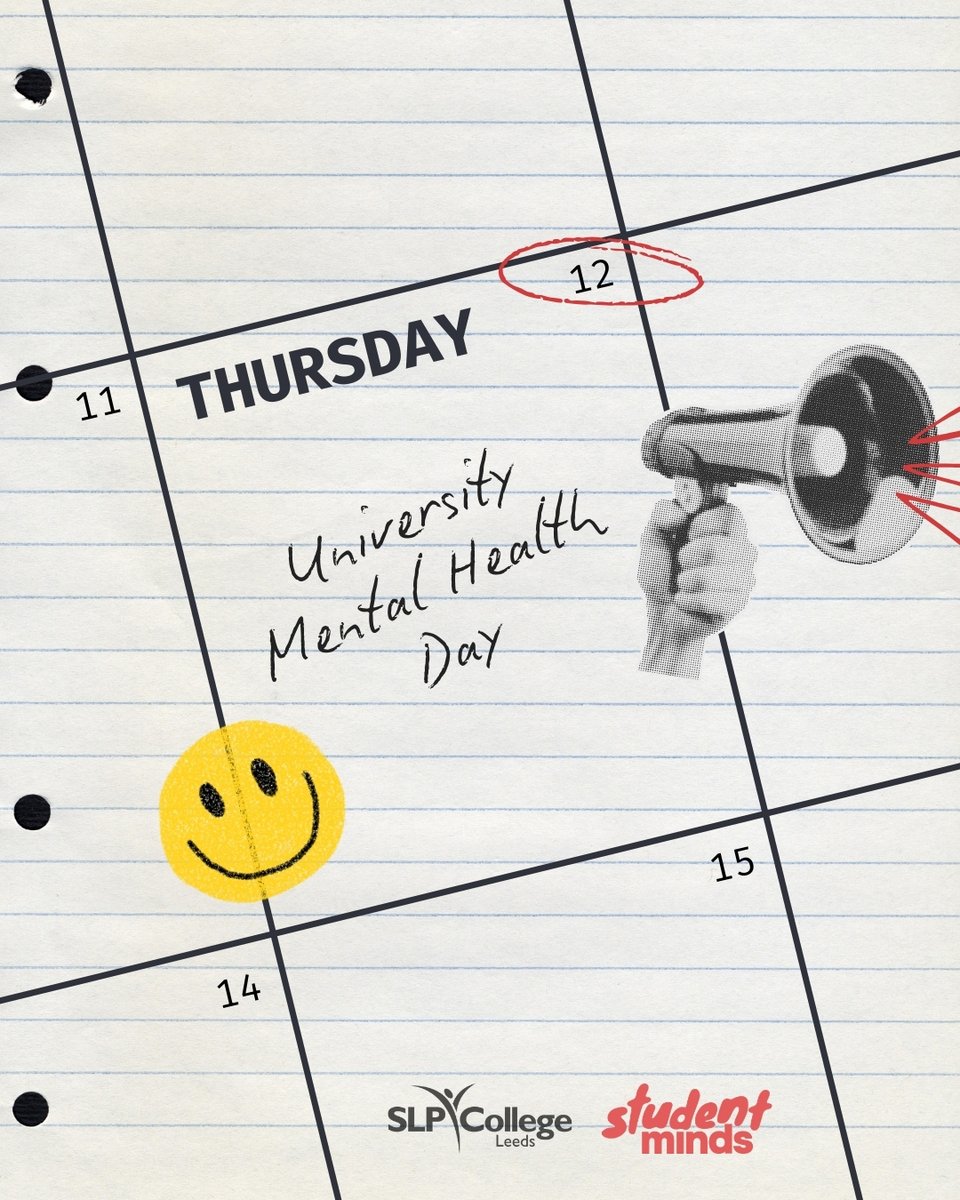 12
THURSDAY
11
University
Mental Health
Day
15
14
SLP College
Leeds
student
minds